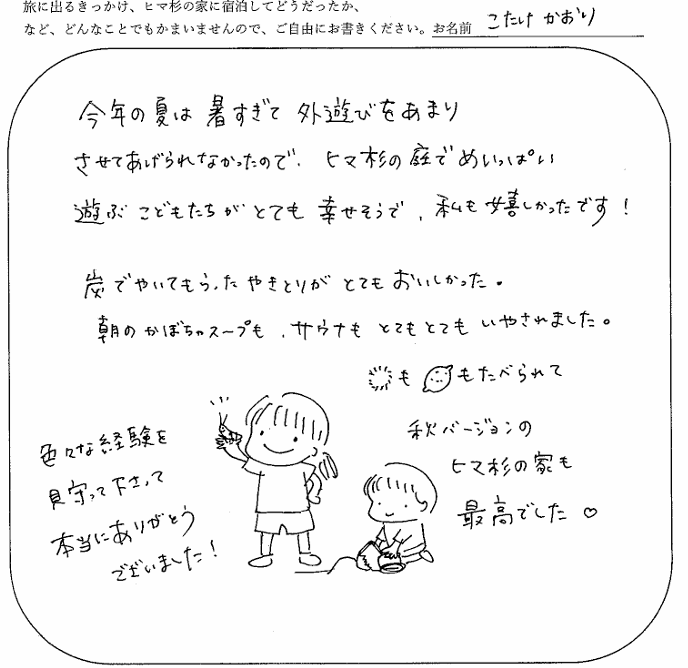 旅に出るきっかけ、ヒマ杉の家に宿泊してどうだったか、
など、どんなことでもかまいませんので、ご自由にお書きください。お名前 こたけ かおり
今年の夏は 暑すぎて 外遊びをあまり
させてあげられなかったので、ヒマ杉の庭でめいっぱい
遊ぶ こどもたちが とても 幸せそうで、私も 嬉しかったです!
炭でやいてもらったやきとりが とてもおいしかった。
朝のかぼちゃスープも、サウナも とてもとても いやされました。
も もたべられて
秋バージョンの
ヒマ杉の家も
最高でした♡
色々な経験を
見守って下さって
本当にありがとう
ございました!